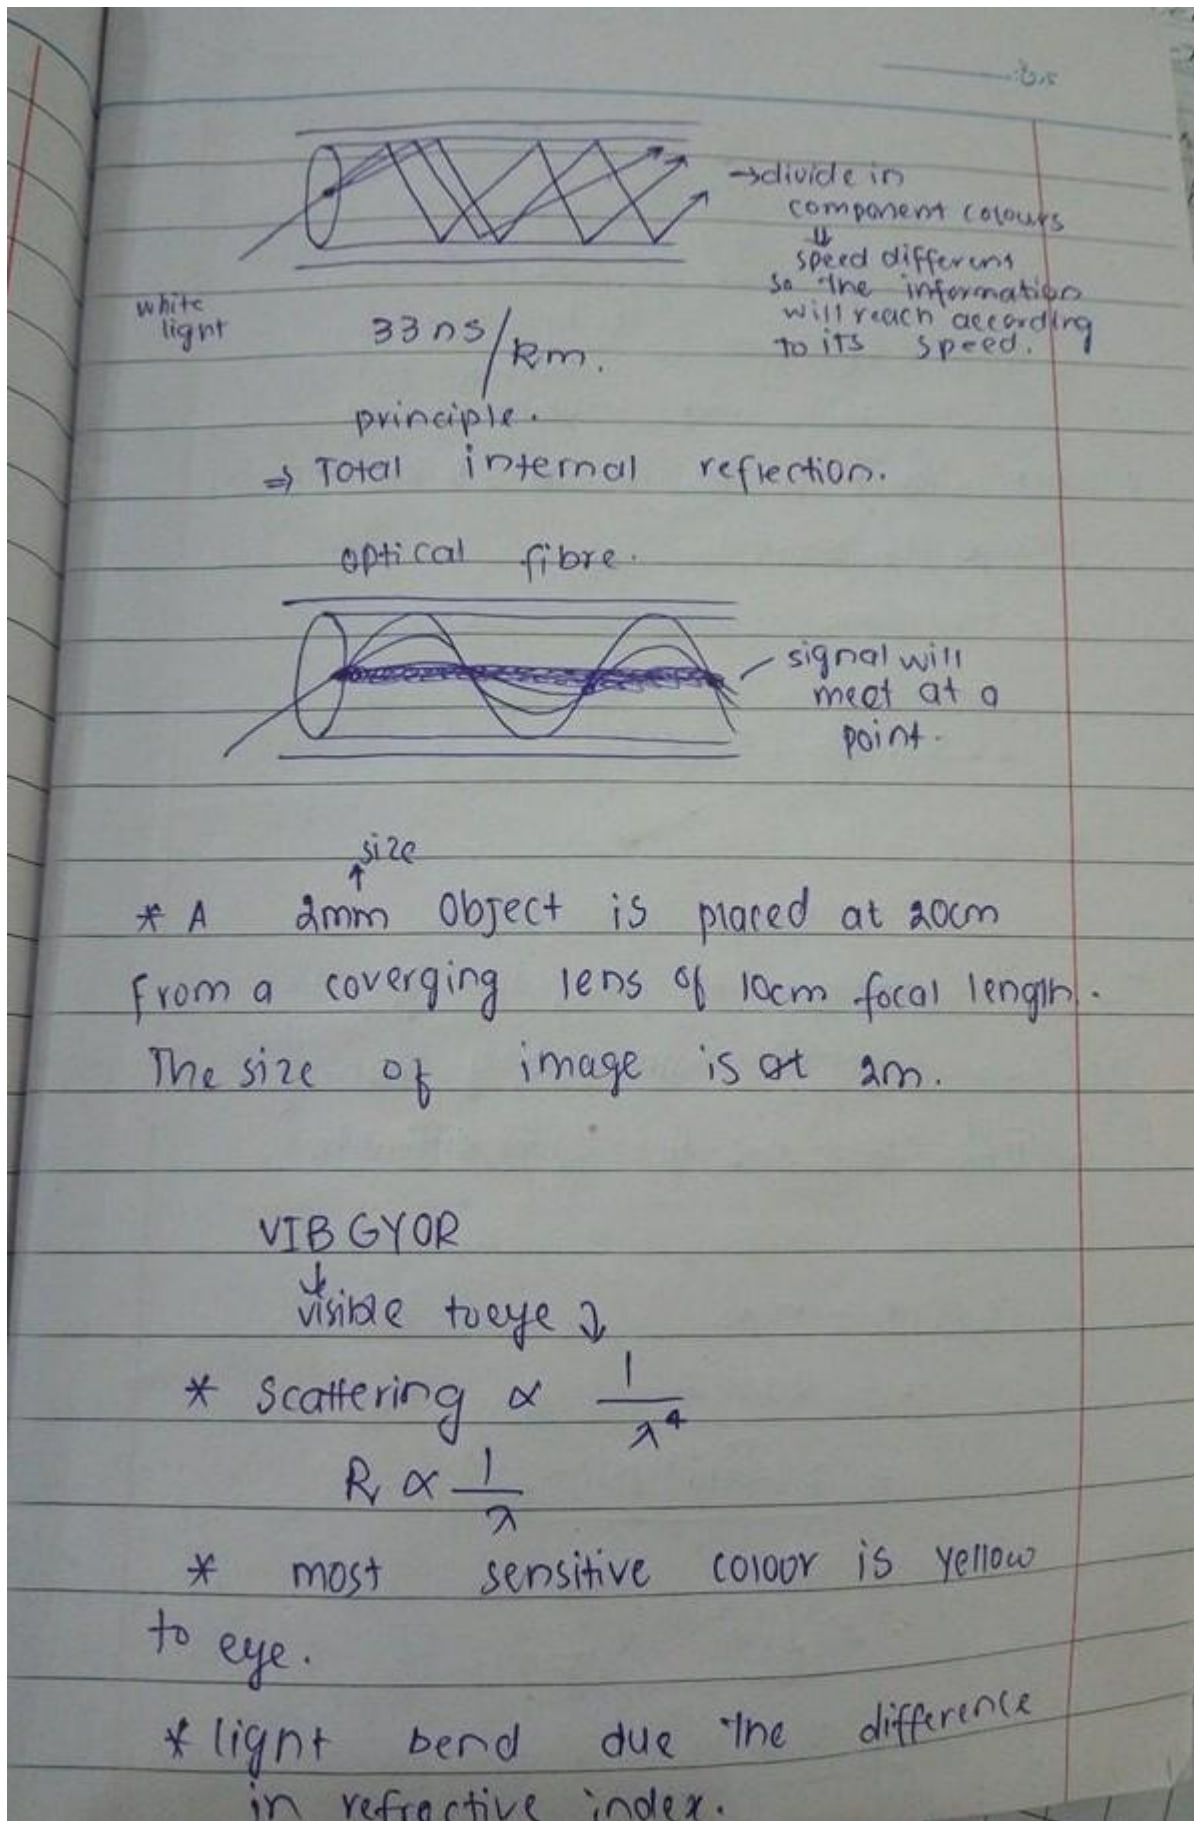 →divide in
component colours
⇓
speed different
so the information
will reach according
to its speed.
white
light
33ns/km.
principle.
⇒ Total internal reflection.
optical fibre.
signal will
meet at a
point.
size
↑
* A 2mm Object is placed at 20cm
from a coverging lens of 10cm focal length.
The size of image is at 2m.
VIBGYOR
↓
visible to eye ↓
* scattering ∝ 1/λ⁴
R ∝ 1/λ
* most sensitive colour is yellow
to eye.
* light bend due the difference
in refractive index.